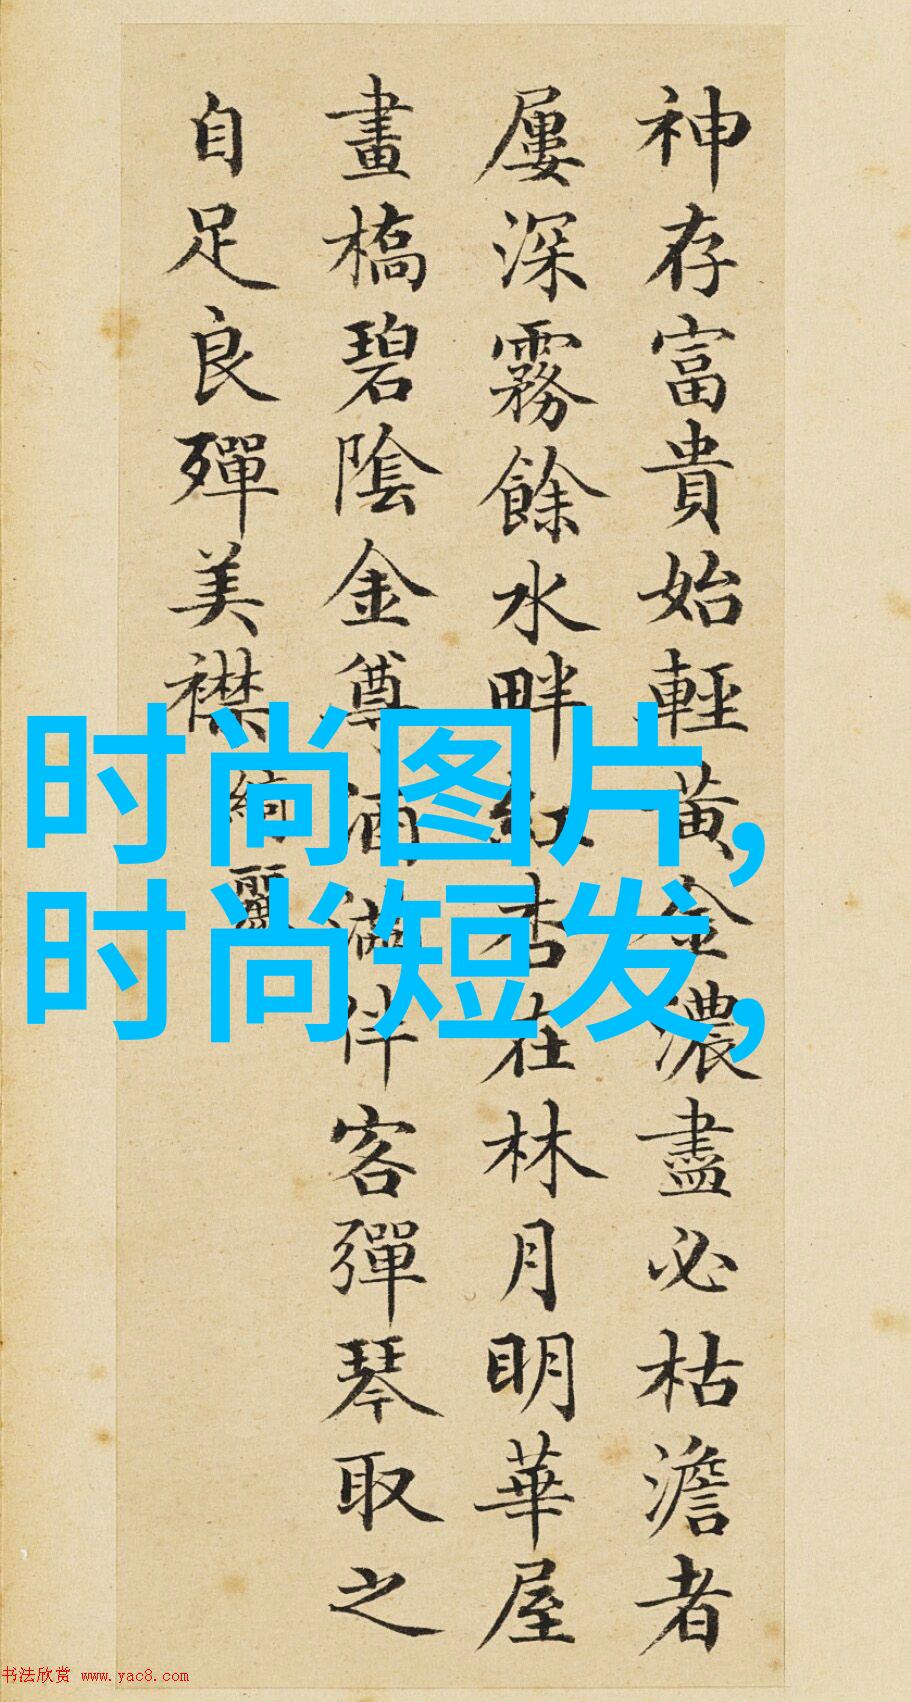 神存富貴始輕黃金濃盡必枯澹者
屢深霧餘水畔紅杏在林月明華屋
畫橋碧陰金尊酒滿伴客彈琴取之
自足良殫美襟
綺麗
时尚图片,
时尚短发,
书法欣赏 www.yac8.com